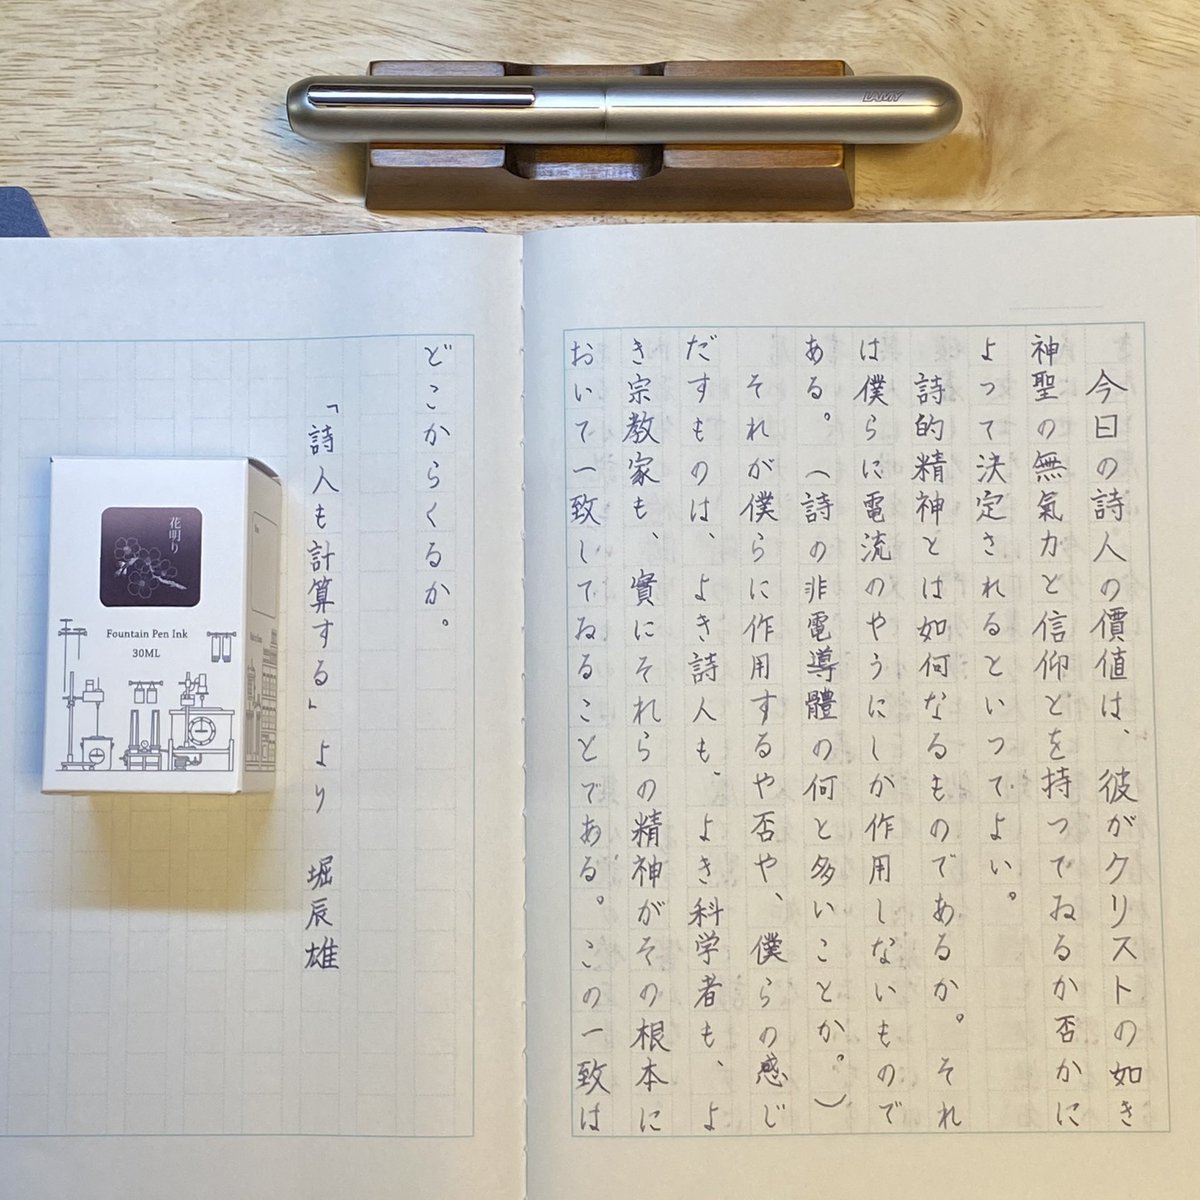 LAMY
今日の詩人の價値は、彼がクリストの如き
神聖の無氣力と信仰とを持つてゐるか否かに
よつて決定されるといつてよい。
詩的精神とは如何なるものであるか。それ
は僕らに電流のやうにしか作用しないもので
ある。(詩の非電導體の何と多いことか。)
それが僕らに作用するや否や、僕らの感じ
だすものは、よき詩人も、よき科学者も、よ
き宗教家も、實にそれらの精神がその根本に
おいて一致してゐることである。この一致は
どこからくるか。
「詩人も計算する」より 堀辰雄
花明り
Fountain Pen Ink
30ML